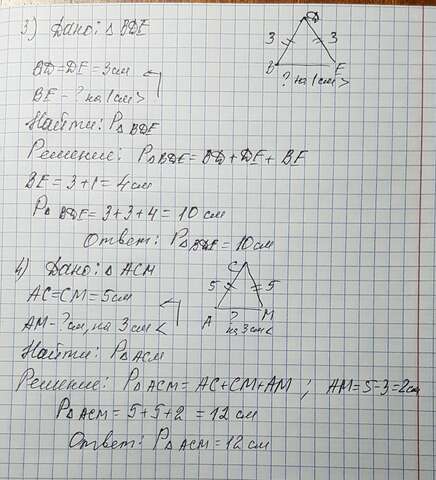 3) Дано: △ BDE
D
3 3
B E
? на 1 см >
BD = DE = 3 см
BE - ? на 1 см >
Найти: P△ BDE
Решение: P△ BDE = BD + DE + BE
BE = 3 + 1 = 4 см
P△ BDE = 3 + 3 + 4 = 10 см
Ответ: P△ BDE = 10 см
4) Дано: △ ACM
C
5 5
A ? M
на 3 см <
AC = CM = 5 см
AM - ? см, на 3 см <
Найти: P△ ACM
Решение: P△ ACM = AC + CM + AM ; AM = 5 - 3 = 2 см
P△ ACM = 5 + 5 + 2 = 12 см
Ответ: P△ ACM = 12 см